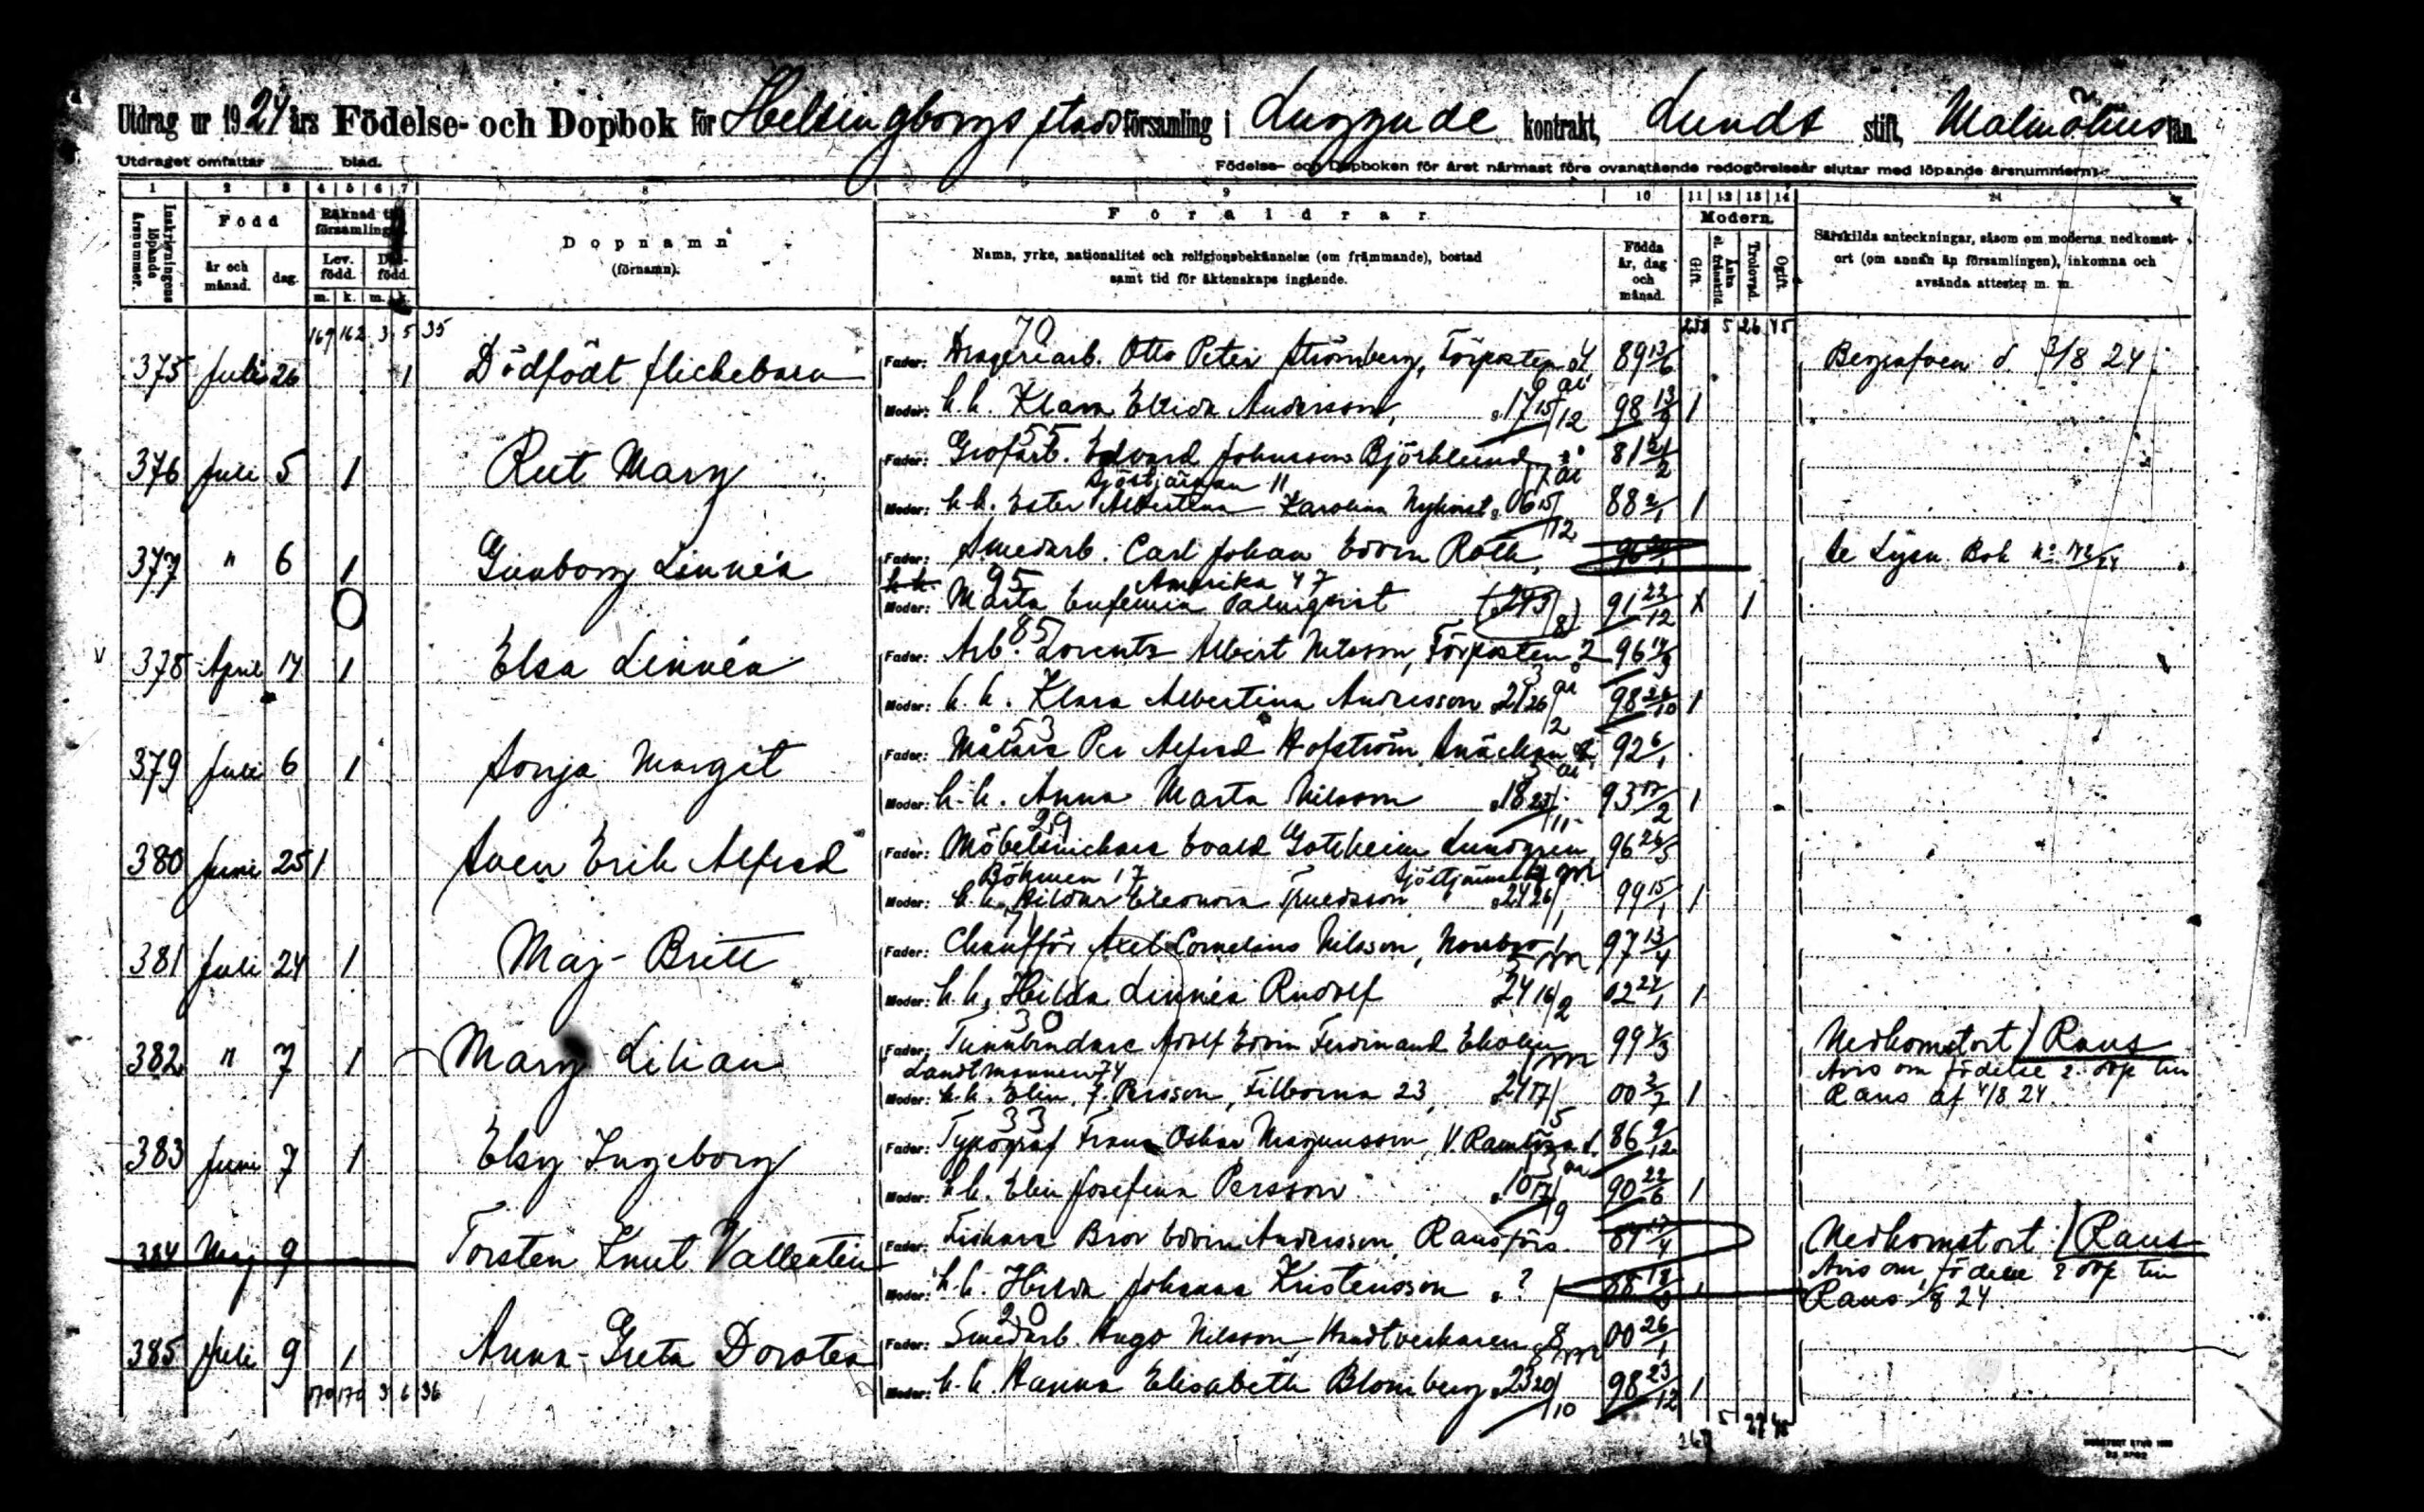 Utdrag ur 1924 års Födelse- och Dopbok för Helsingborgs stads församling i Luggude kontrakt, Lunds stift, Malmöhus län.
Utdraget omfattar blad.
Födelse- och Dopboken för året närmast före ovanstående redogörelseår slutar med löpande årsnummern:
1 2 3 4 5 6 7 8 9 10 11 12 13 14 24
Inskrivningens löpande årsnummer.
Född
år och månad.
dag.
Räknad till församlingen.
Lev. född.
Död-född.
m. k. m. k.
Dopnamn
(förnamn).
Föräldrar
Namn, yrke, nationalitet och religionsbekännelse (om främmande), bostad
samt tid för äktenskaps ingående.
Födda år, dag och månad.
Modern.
Gift.
Änka el. frånskild.
Trolovad.
Ogift.
Särskilda anteckningar, såsom om moderns nedkomst-
ort (om annan än församlingen), inkomna och
avsända attester m. m.
169 162 3 5 35
70
375 Juli 26 1 Dödfödt flickebarn Fader: Otto Peter Strömberg, Förposten 89 13/6 Begrafven d. 3/8 24
Moder: h.h. Klara Elida Andersson, 17 15/12 98 13/9 1
55
376 Juli 5 1 Rut Mary Fader: Grofarb. Edvard Johnsson Björklund 81 21/2
Sjöstjärnan 11
Moder: h.h. Ester Albertina Karolina Nykvist 06 15/12 88 2/1 1
377 " 6 1 Gunborg Linnéa Fader: Smedarb. Carl Johan Edvin Roth, Se Lysn. Bok
95 Amerika 47
Moder: Marta Eufemia Palmqvist 91 22/12 X 1
85
378 April 17 1 Elsa Linnéa Fader: Arb. Lorentz Albert Nilsson, Förposten 2 96 14/9
Moder: h.h. Klara Albertina Andersson 21 26/2 98 26/10 1
53
379 Juli 6 1 Sonja Margit Fader: Målare Per Alfred Hofström, Snäckan 92 6/1
Moder: h.h. Anna Marta Nilsson 18 23/11 93 17/2 1
29
380 Juni 25 1 Sven Erik Alfred Fader: Möbelsnickare Evald Gottheim Lundgren 96 26/5
Böhmen 17
Moder: h.h. Hildur Eleonora Truedsson 24 26/1 99 15/1 1
381 Juli 24 1 Maj-Britt Fader: Chaufför Axel Cornelius Nilsson, Norrbro 1 97 13/4
Moder: h.h. Hilda Linnéa Rudolf 24 16/2 02 27/1 1
30
382 " 7 1 Mary Lilian Fader: Tunnbindare Adolf Edvin Ferdinand Ekholm 99 4/3 Nedkomstort Raus
Landtmannen 74 Avis om födelse o. dop till
Moder: h.h. Elin, f. Persson, Filborna 23, 24 17/5 00 2/7 1 Raus af 4/8 24.
33
383 Juni 7 1 Elsy Ingeborg Fader: Typograf Frans Oskar Magnusson, V. Ramlösa 86 9/12
Moder: h.h. Elin Josefina Persson 10 17/9 90 22/6 1
384 Maj 9 Torsten Knut Vallentin Fader: Fiskare Bror Edvin Andersson, Raus förs. 87 17/4 Nedkomstort: Raus
Avis om födelse o dop till
Moder: h.h. Hilda Johanna Kristensson ? 1 Raus /8 24.
20
385 Juli 9 1 Anna-Greta Dorotea Fader: Smedarb. Hugo Nilsson, Handtverkaren 8 00 26/1
Moder: h.h. Hanna Elisabeth Blomberg 23 20/10 98 23/12 1
170 170 3 6 36
5 27 45